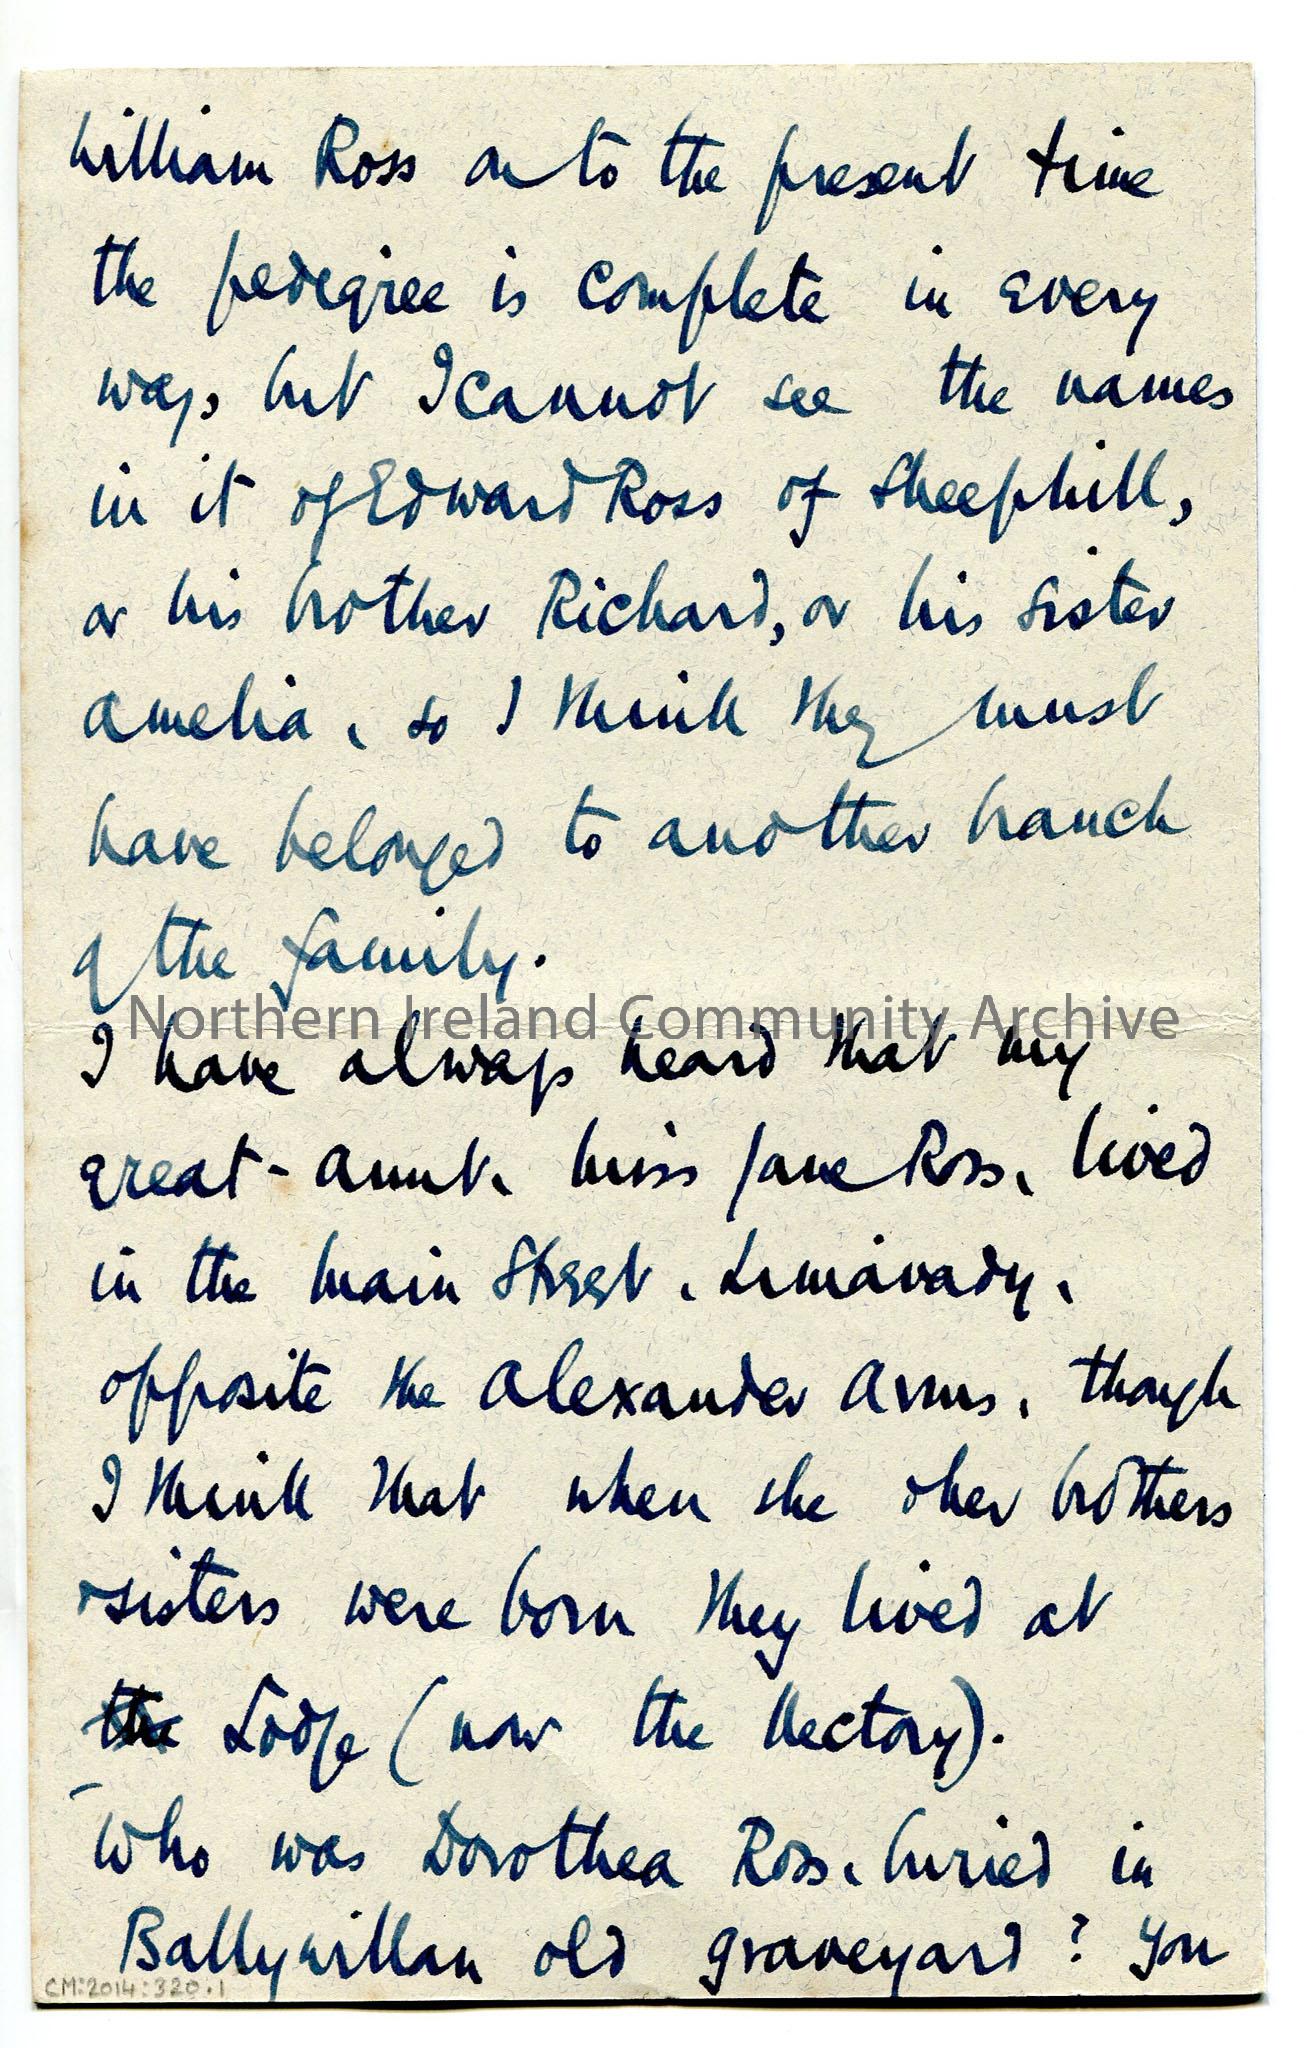 William Ross on to the present time
the pedegree is complete in every
way, but I cannot see the names
in it of Edward Ross of Sheephill,
or his brother Richard, or his sister
Amelia, so I think they must
have belonged to another branch
of the family.
Northern Ireland Community Archive
I have always heard that my
great-aunt, Miss Jane Ross, lived
in the Main Street, Limavady,
opposite the Alexander Arms, though
I think that when she & her brothers
& sisters were born they lived at
the Lodge (now the Rectory).
Who was Dorothea Ross, buried in
Ballywillan old graveyard? You
CM:2014:320.1